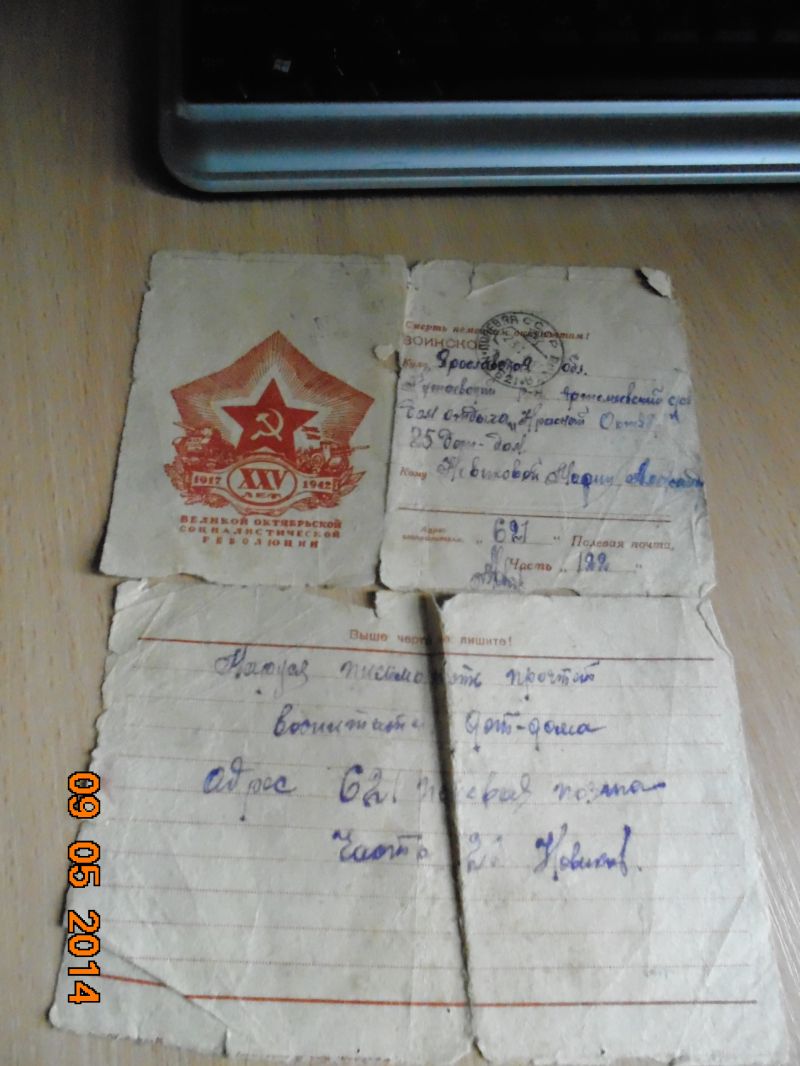 1917 XXV 1942
ЛЕТ
ВЕЛИКОЙ ОКТЯБРЬСКОЙ
СОЦИАЛИСТИЧЕСКОЙ
РЕВОЛЮЦИИ
Смерть немецким оккупантам!
ВОИНСКОЕ
Куда Ярославская обл.
р-н Артемьевский с/с
Дом отдыха „Красный Октябрь
25 Дет-дом
Кому Новиковой Марии
Адрес
отправителя: „ 621 " Полевая почта,
Часть „ 122 "
Выше черты не пишите!
Маюся письмо прочтёт
дет-дома
адрес 621 полевая почта
Часть Новиков.
09 05 2014